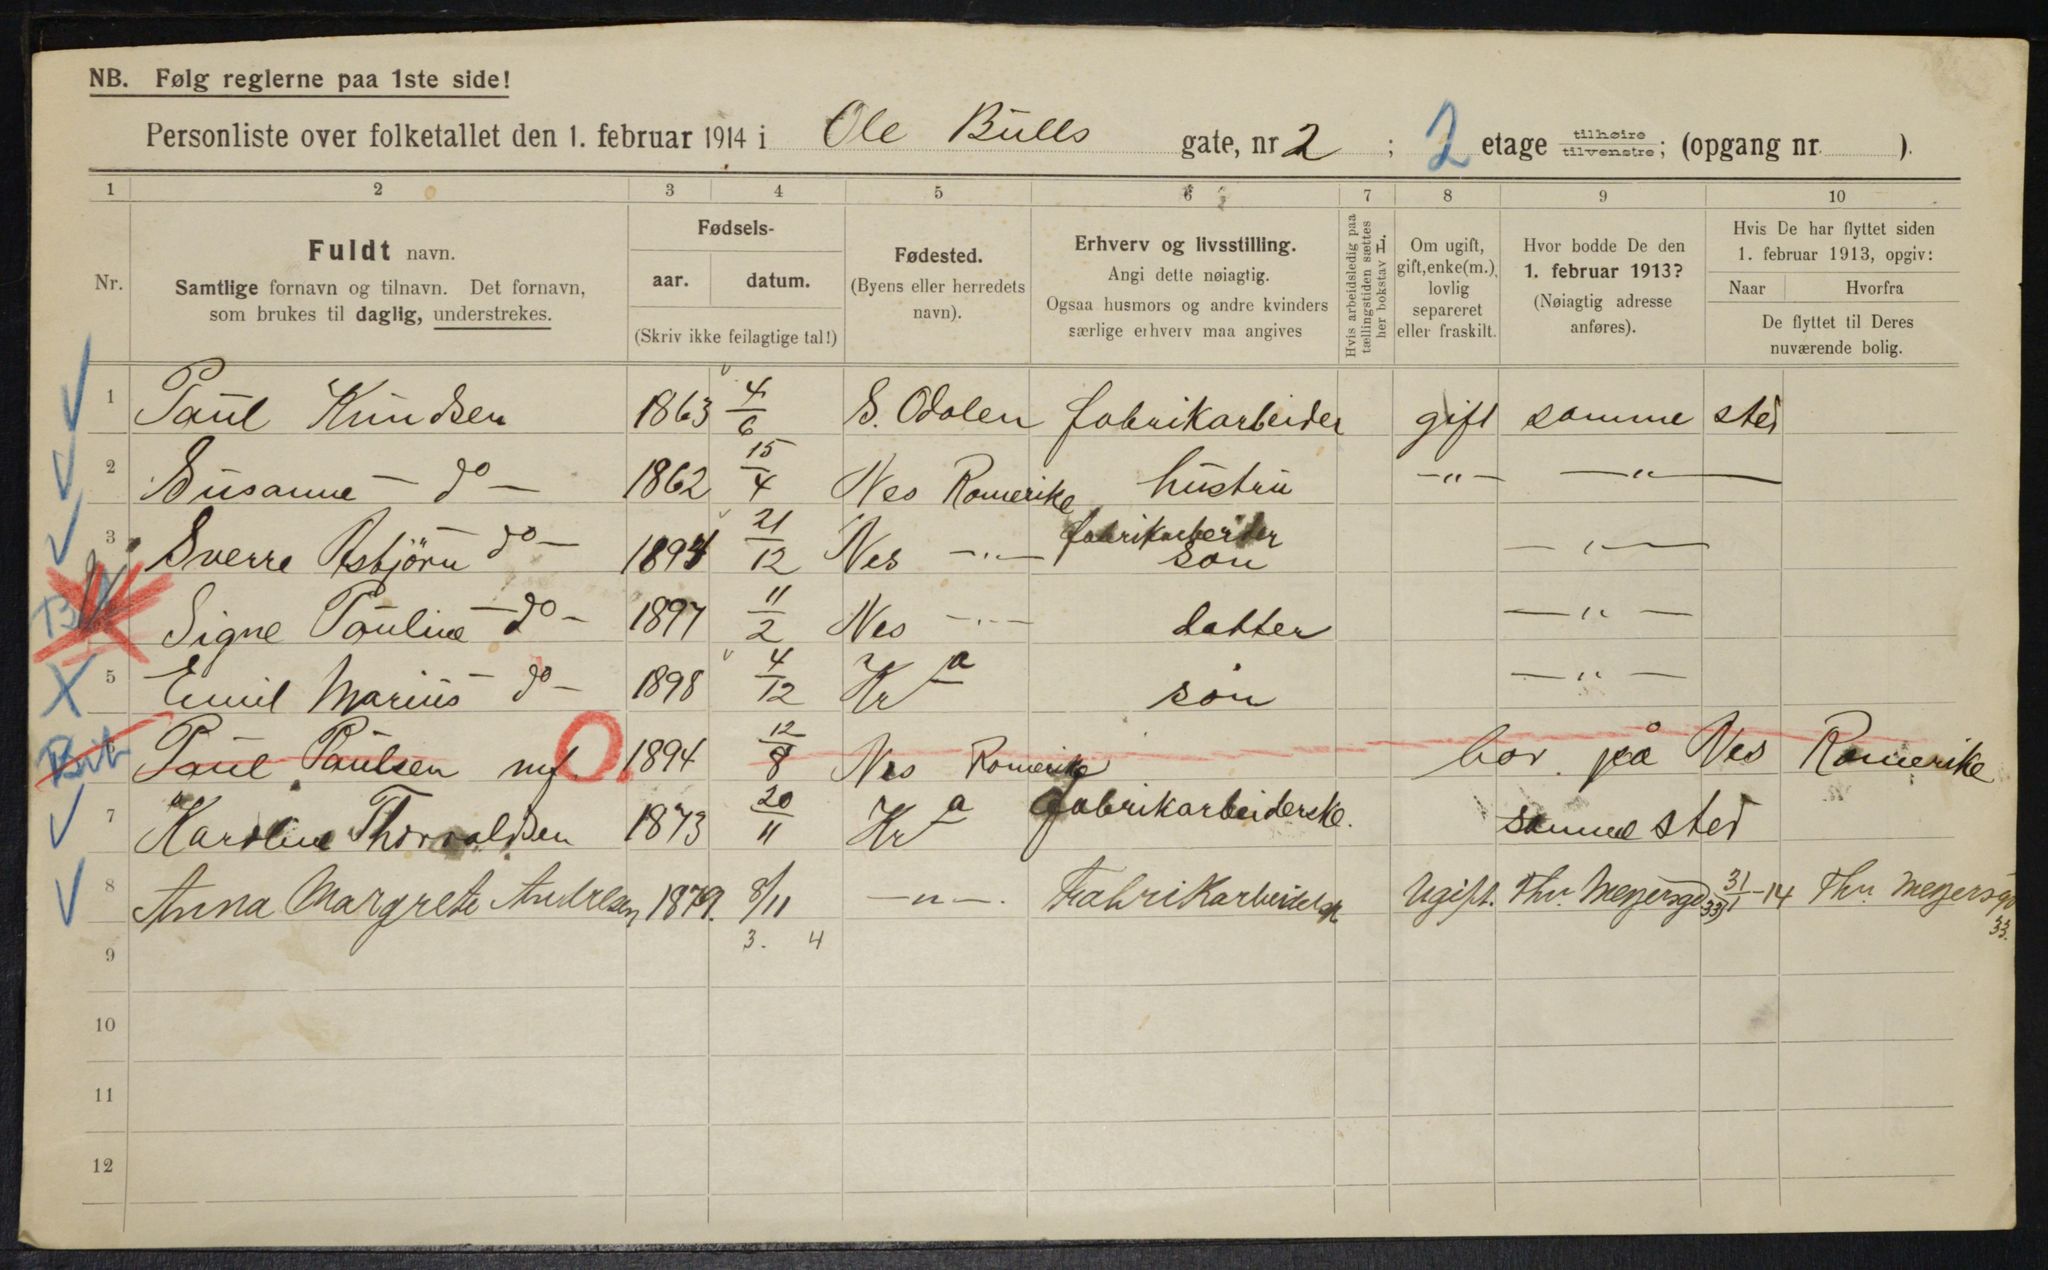 NB. Følg reglerne paa 1ste side!
Personliste over folketallet den 1. februar 1914 i Ole Bulls gate, nr 2 ; 2 etage tilhøire tilvenstre; (opgang nr. ).
1 2 3 4 5 6 7 8 9 10
Nr.
Fuldt navn.
Samtlige fornavn og tilnavn. Det fornavn,
som brukes til daglig, understrekes.
Fødsels-
aar. datum.
(Skriv ikke feilagtige tal!)
Fødested.
(Byens eller herredets
navn).
Erhverv og livsstilling.
Angi dette nøiagtig.
Ogsaa husmors og andre kvinders
særlige erhverv maa angives
Hvis arbeidsledig paa
tællingstiden sættes
her bokstav L.
Om ugift,
gift, enke(m.),
lovlig
separeret
eller fraskilt.
Hvor bodde De den
1. februar 1913?
(Nøiagtig adresse
anføres).
Hvis De har flyttet siden
1. februar 1913, opgiv:
Naar Hvorfra
De flyttet til Deres
nuværende bolig.
1 Paul Knudsen 1863 4/6 S. Odalen fabrikarbeider gift samme sted
2 Susanne — do — 1862 15/4 Nes Romerike hustru —"— —"—
3 Sverre Asbjørn do — 1894 21/12 Nes —"— fabrikarbeider
søn —"—
Signe Pauline — do — 1897 11/2 Nes —"— datter —"—
5 Emil Marius — do — 1898 4/12 Kra søn —"—
Bit Paul Paulsen mf. 1894 12/8 Nes Romerike bor på Nes Romerike
7 Karoline Thorvaldsen 1873 20/11 Kra fabrikarbeiderske. samme sted
8 Anna Margrete Andresen 1879. 8/11 —"—. Ugift. Thv. Meyersgd 33 31/1-14 Thv. Meyersgd
33.
3. 4
9
10
11
12